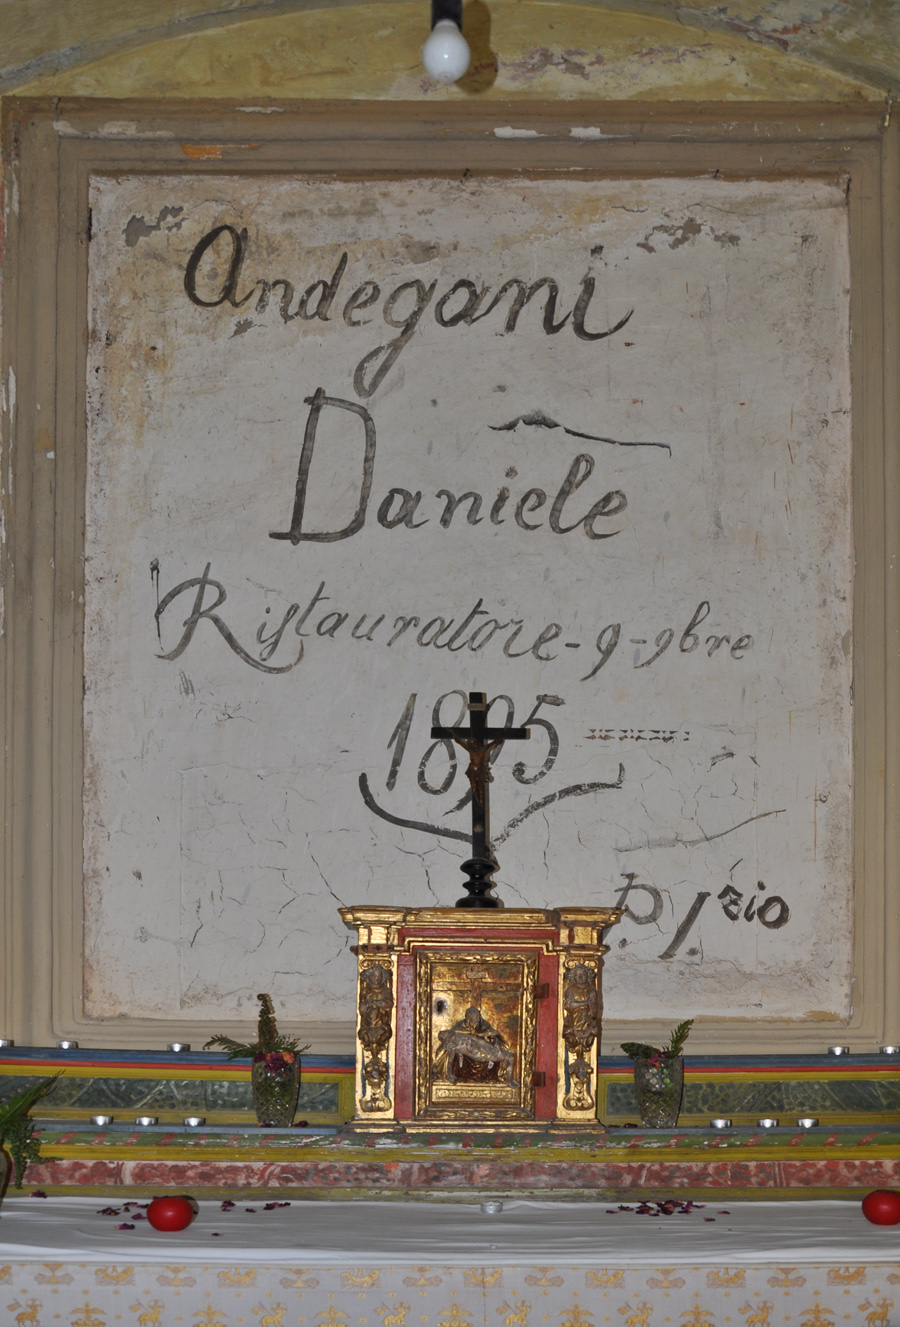 Andegani
Daniele
Ristauratore - 9 - 9bre
1895